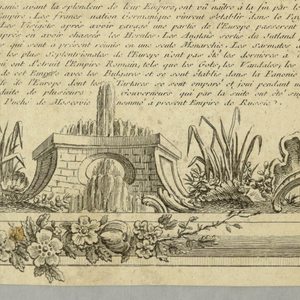 avant la splendeur de leur Empire, ont vû naitre à la fin par le
les Lunes nation Germanique vinrent établir dans le
après avoir ravagé une partie de l'Europe passerent
après en avoir chassé les Herules. Les Anglais sortis du Jutland
qui sont a présent réunis en une seule Monarchie. Les Sarmates
les plus Septentrionales de l'Europe n'ont pas été les derniers à
qui ont détruit l'Empire Romain, tels que les Gots, les Vandales, les
de cet Empire avec les Bulgares et se sont établis dans la Panonie
de l'Europe dont les Tartares se sont emparé et qui pendant
de plusieurs Gouverneurs qui par la suite ont été
Duché de Moscovie nommé a present Empire de Russie.